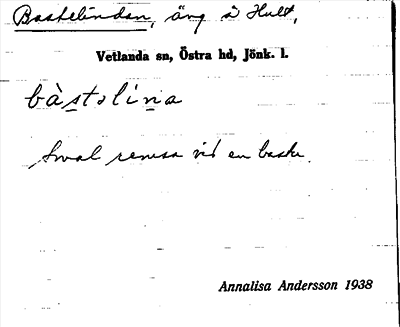 Bastelindan, äng å Hult,
Vetlanda sn, Östra hd, Jönk. l.
bàstəlìna
Smal remsa vid en backe.
Annalisa Andersson 1938